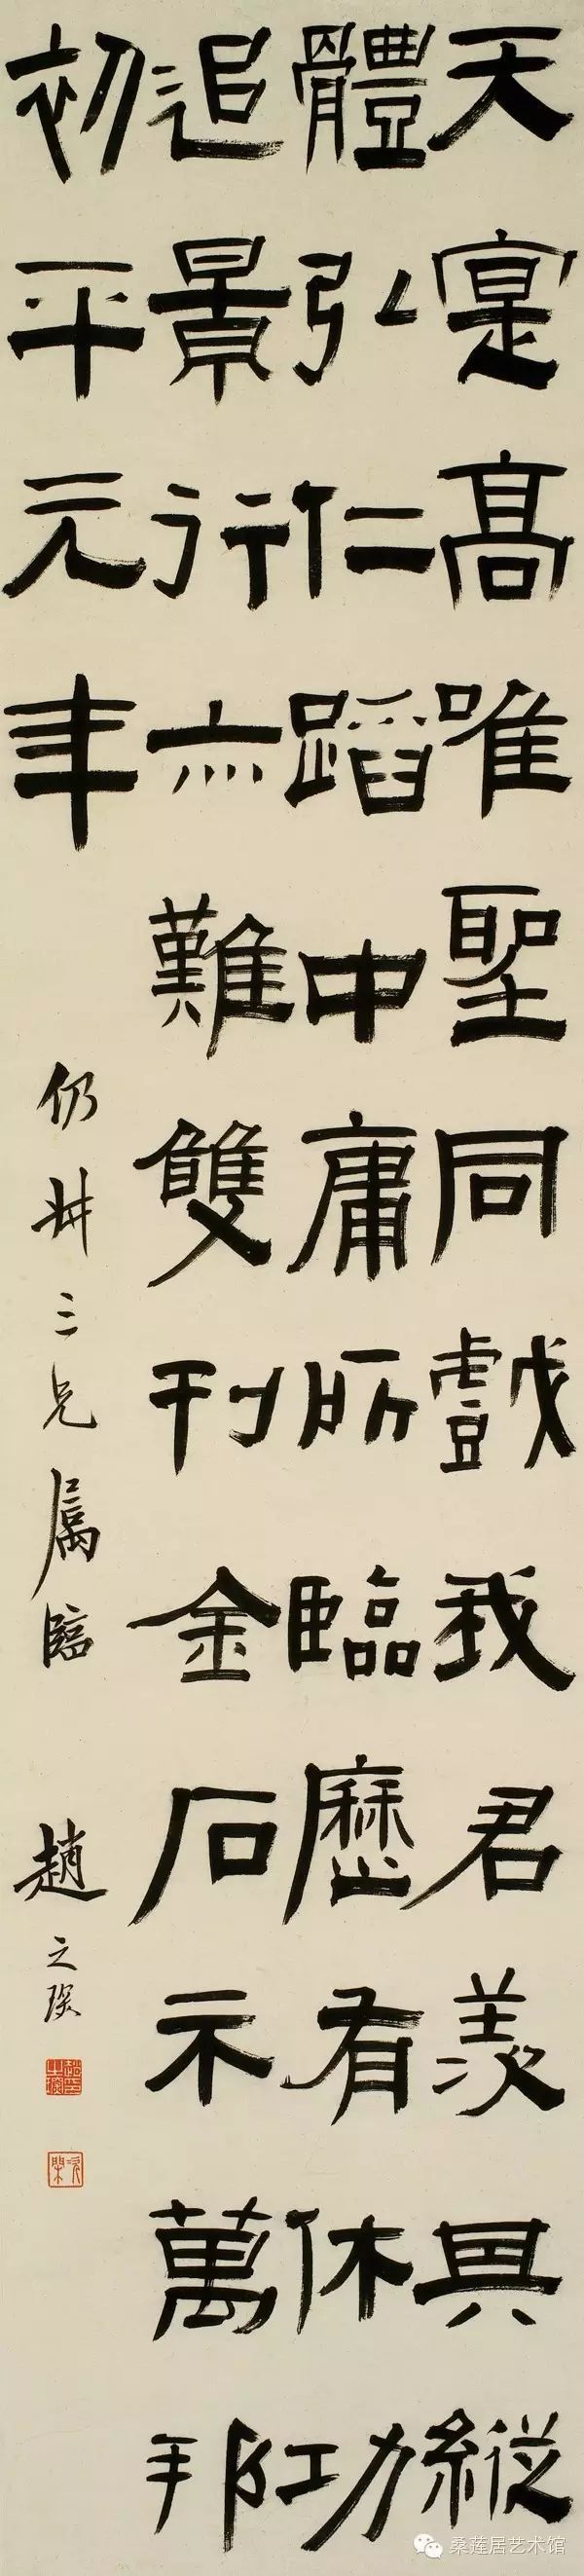 天寔高唯聖同戲我君羨其縱
體弘仁蹈中庸所臨歷有休功
追景行亦難雙刊金石示萬邦
初平元年
仍三兄屬臨 趙之琛
桑莲居艺术馆